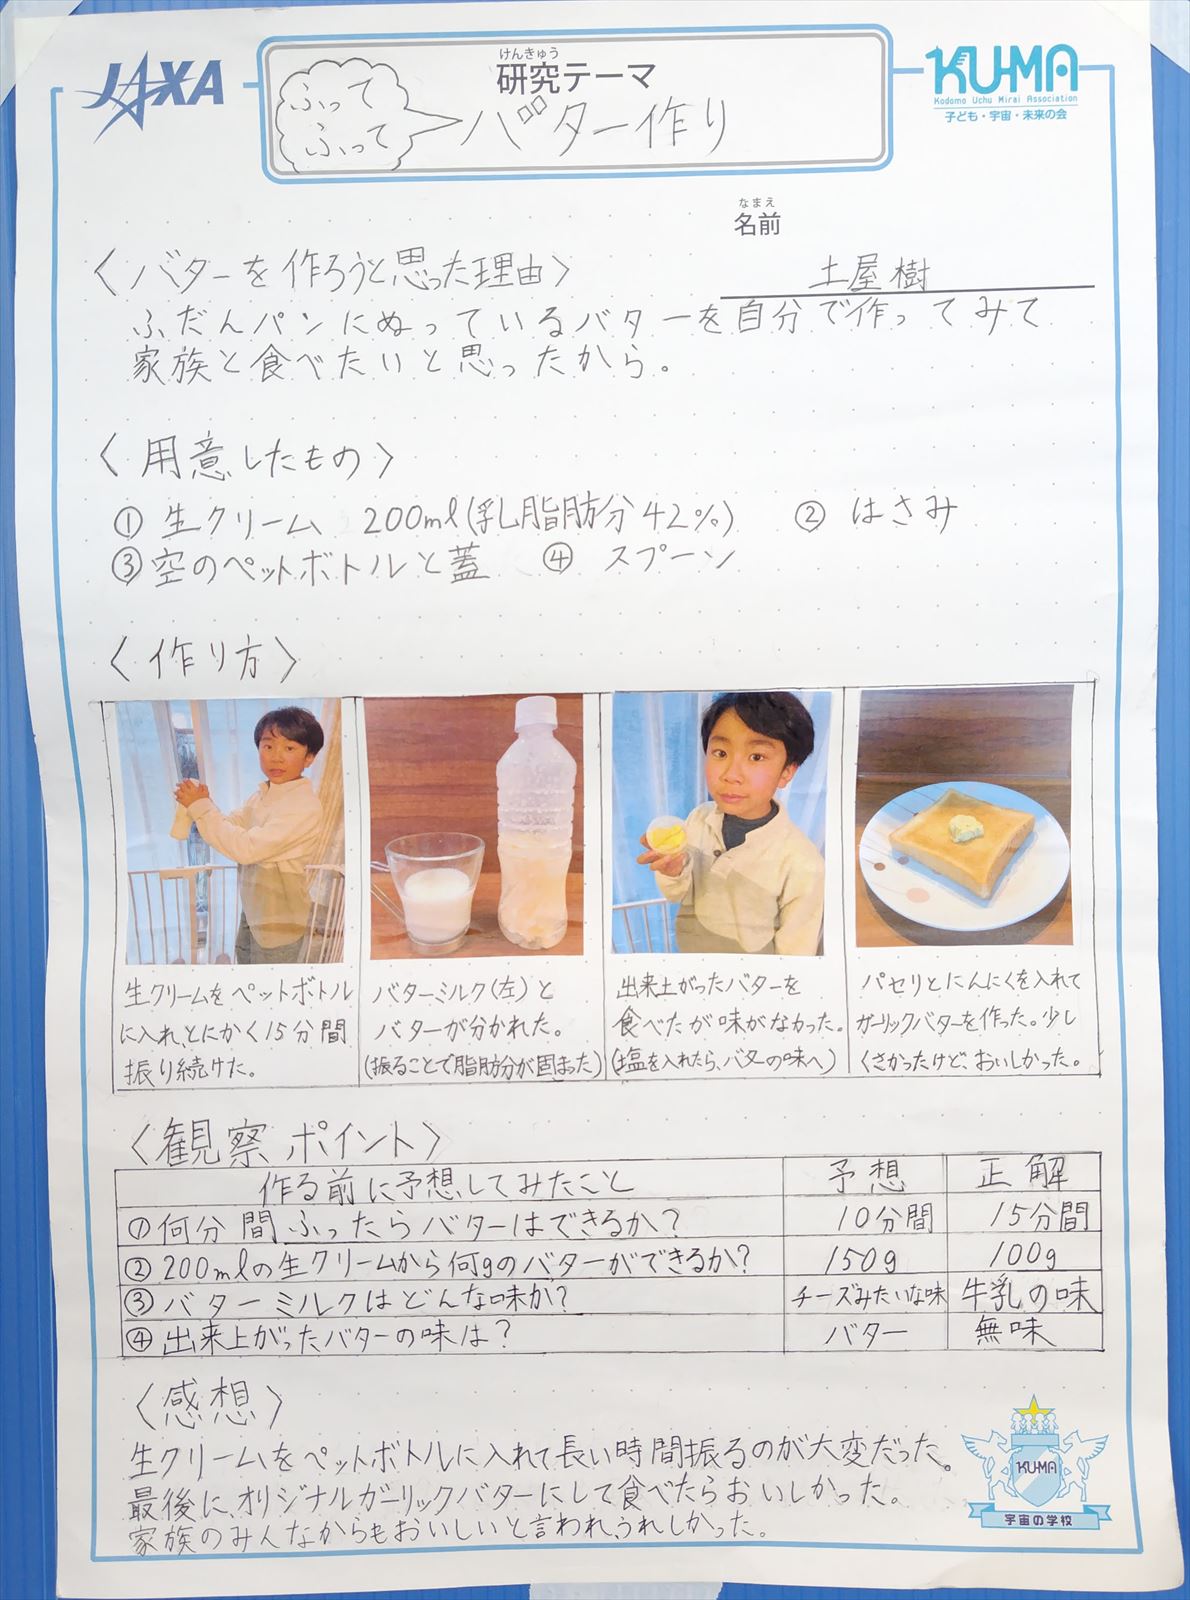 JAXA
ふって
ふって
けんきゅう
研究テーマ
バター作り
KU-MA
Kodomo Uchu Mirai Association
子ども・宇宙・未来の会
なまえ
名前
土屋樹
〈バターを作ろうと思った理由〉
ふだんパンにぬっているバターを自分で作ってみて
家族と食べたいと思ったから。
〈用意したもの〉
① 生クリーム 200ml(乳脂肪分42%) ② はさみ
③ 空のペットボトルと蓋 ④ スプーン
〈作り方〉
生クリームをペットボトル
に入れ、とにかく15分間
振り続けた。
バターミルク(左)と
バターが分かれた。
(振ることで脂肪分が固まった)
出来上がったバターを
食べたが味がなかった。
(塩を入れたら、バターの味へ)
パセリとにんにくを入れて
ガーリックバターを作った。少し
くさかったけど、おいしかった。
〈観察ポイント〉
作る前に予想してみたこと 予想 正解
①何分間ふったらバターはできるか? 10分間 15分間
②200mlの生クリームから何gのバターができるか? 150g 100g
③バターミルクはどんな味か? チーズみたいな味 牛乳の味
④出来上がったバターの味は? バター 無味
〈感想〉
生クリームをペットボトルに入れて長い時間振るのが大変だった。
最後に、オリジナルガーリックバターにして食べたらおいしかった。
家族のみんなからもおいしいと言われ、うれしかった。
KU-MA
宇宙の学校